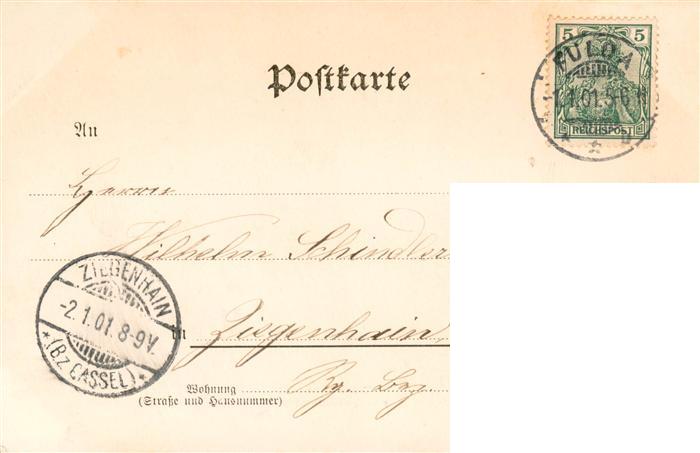 5 5
REICHSPOST
FULDA
1.1.01.5-6N
Postkarte
An
Herrn
Wilhelm Schindler
in Ziegenhain,
Rg. Bez.
Wohnung
(Straße und Hausnummer)
ZIEGENHAIN
-2.1.01.8-9V.
*(Bz CASSEL)*